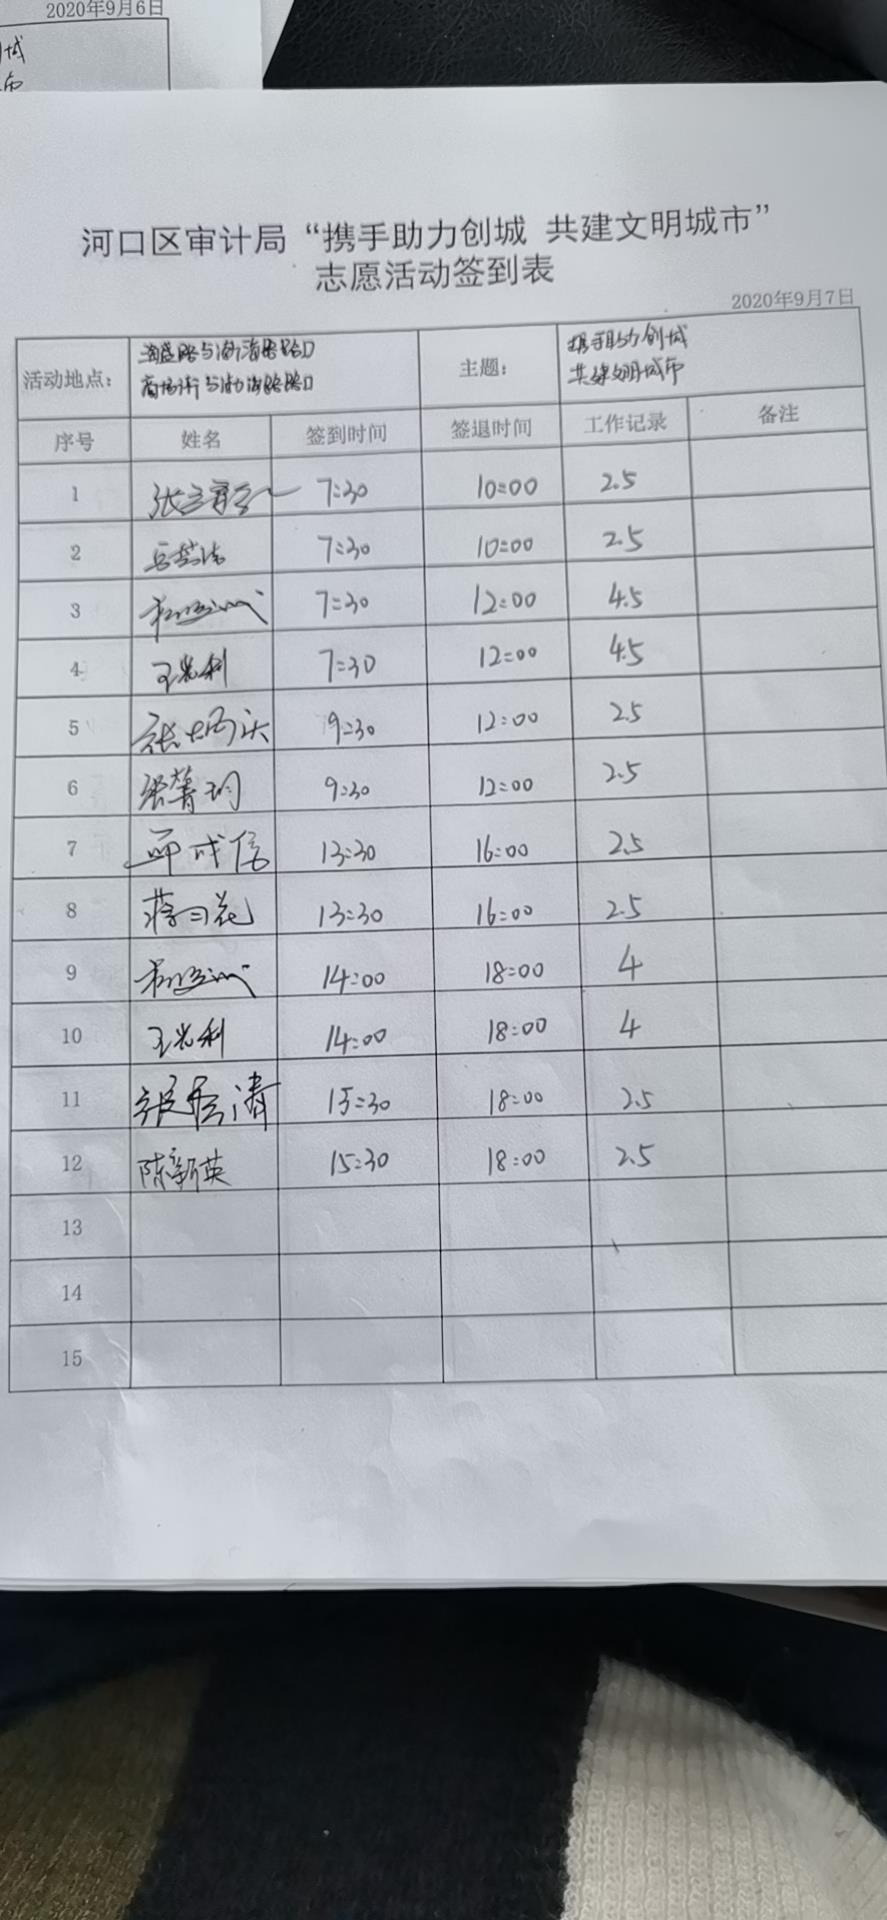 2020年9月6日
城
市
河口区审计局“携手助力创城 共建文明城市”
志愿活动签到表
2020年9月7日
活动地点: 海盛路与渤海路路口 主题: 携手助力创城
商场街与渤海路路口 共建文明城市
序号 姓名 签到时间 签退时间 工作记录 备注
1 7:30 10:00 2.5
2 7:30 10:00 2.5
3 7:30 12:00 4.5
4 王光利 7:30 12:00 4.5
5 9:30 12:00 2.5
6 张菁玥 9:30 12:00 2.5
7 成信 13:30 16:00 2.5
8 蒋花 13:30 16:00 2.5
9 14:00 18:00 4
10 王光利 14:00 18:00 4
11 张居清 15:30 18:00 2.5
12 陈新英 15:30 18:00 2.5
13
14
15